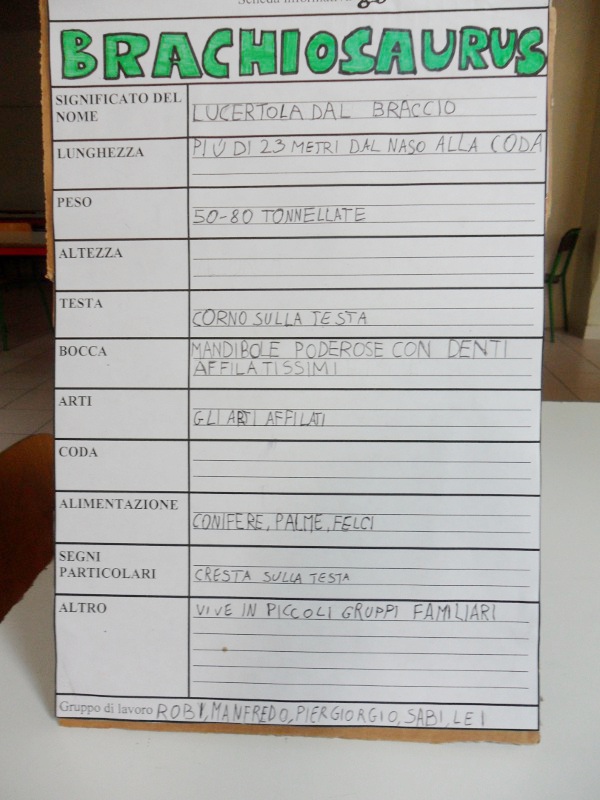 BRACHIOSAURUS
SIGNIFICATO DEL
NOME
LUCERTOLA DAL BRACCIO
LUNGHEZZA
PIÚ DI 23 METRI DAL NASO ALLA CODA
PESO
50-80 TONNELLATE
ALTEZZA
TESTA
CORNO SULLA TESTA
BOCCA
MANDIBOLE PODEROSE CON DENTI
AFFILATISSIMI
ARTI
GLI ARTI AFFILATI
CODA
ALIMENTAZIONE
CONIFERE, PALME, FELCI
SEGNI
PARTICOLARI
CRESTA SULLA TESTA
ALTRO
VIVE IN PICCOLI GRUPPI FAMILIARI
Gruppo di lavoro ROBI, MANFREDO, PIERGIORGIO, SABI, LEI